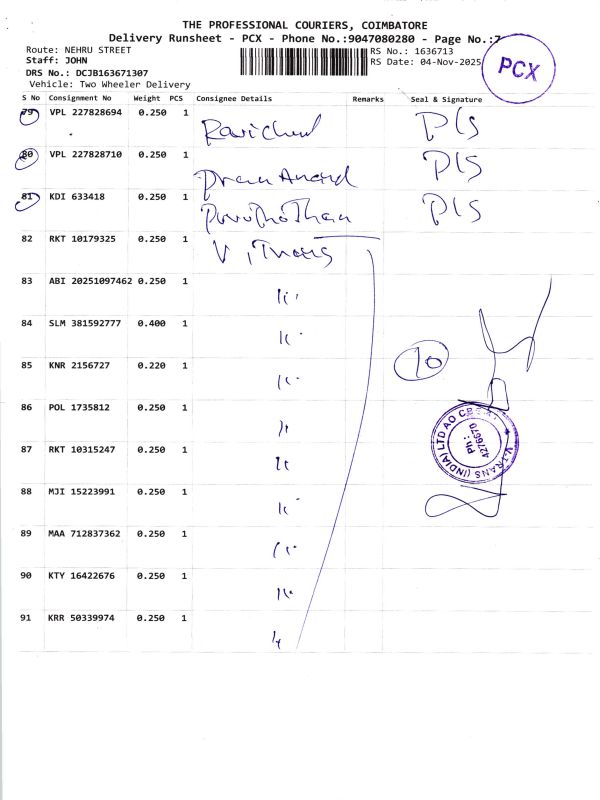 THE PROFESSIONAL COURIERS, COIMBATORE
Delivery Runsheet - PCX - Phone No.:9047080280 - Page No.:7
Route: NEHRU STREET
RS No.: 1636713
Staff: JOHN
RS Date: 04-Nov-2025
PCX
DRS No.: DCJB163671307
Vehicle: Two Wheeler Delivery
S No Consignment No Weight PCS Consignee Details Remarks Seal & Signature
79 VPL 227828694 0.250 1 Ravichand Pls
80 VPL 227828710 0.250 1 Prem Anand Pls
81 KDI 633418 0.250 1 Pls
82 RKT 10179325 0.250 1 V.Trans
83 ABI 20251097462 0.250 1 "
84 SLM 381592777 0.400 1 "
85 KNR 2156727 0.220 1 "
10
86 POL 1735812 0.250 1 "
87 RKT 10315247 0.250 1 "
V.TRANS (INDIA) LTD AO
Ph:
4276670
88 MJI 15223991 0.250 1 "
89 MAA 712837362 0.250 1 "
90 KTY 16422676 0.250 1 "
91 KRR 50339974 0.250 1 "